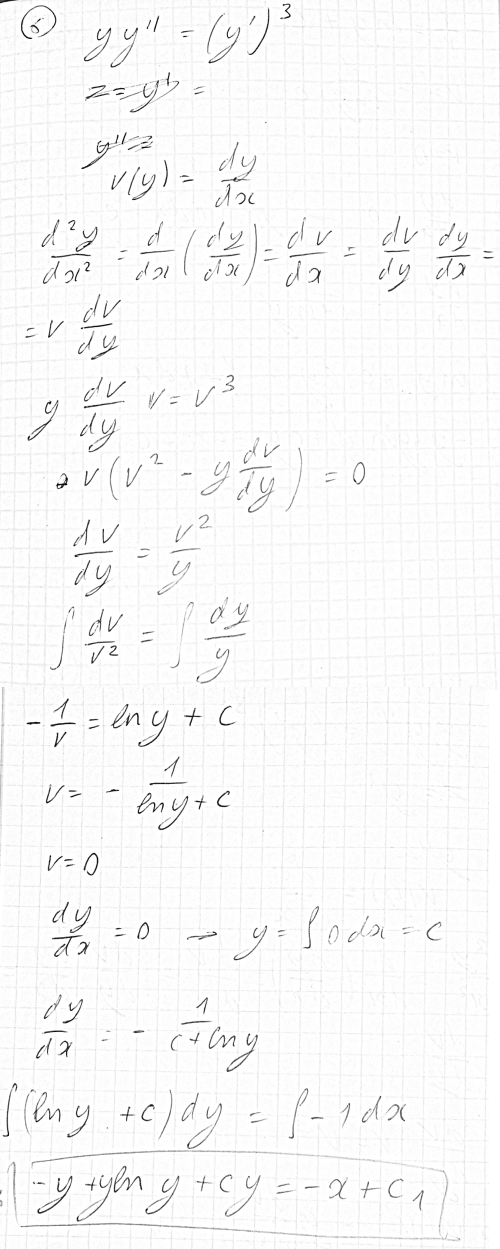 б) yy'' = (y')³
z = y' =
y'' =
v(y) = dy/dx
d²y/dx² = d/dx (dy/dx) = dv/dx = dv/dy dy/dx =
= v dv/dy
y dv/dy v = v³
v(v² - y dv/dy) = 0
dv/dy = v²/y
∫ dv/v² = ∫ dy/y
-1/v = ln y + c
v = - 1/(ln y + c)
v = 0
dy/dx = 0 → y = ∫ 0 dx = c
dy/dx = - 1/(c + ln y)
∫(ln y + c) dy = ∫ -1 dx
-y + y ln y + cy = -x + c₁